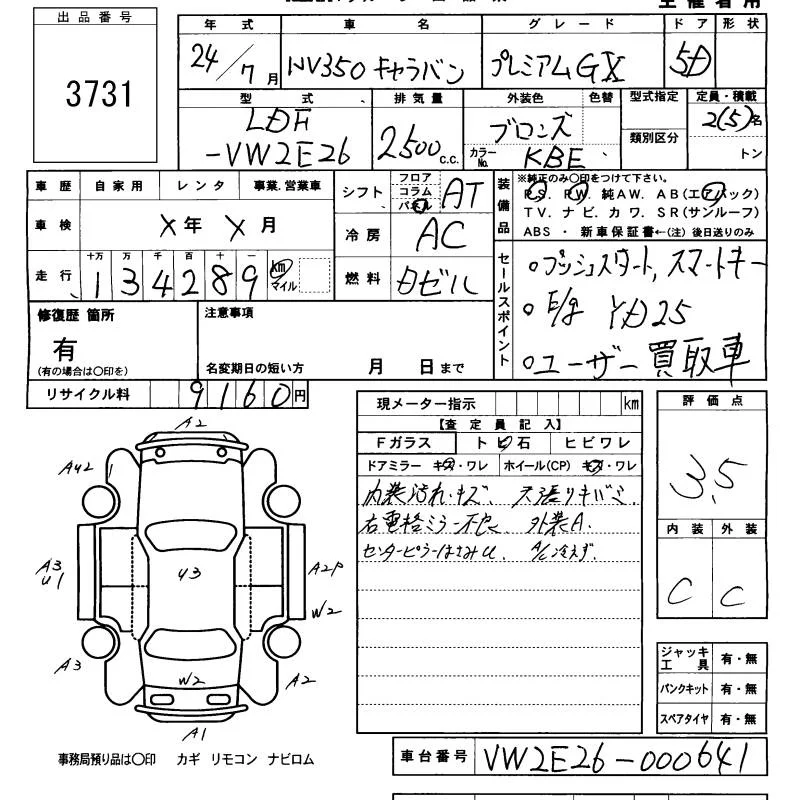 出品番号
3731
年式 車名 グレード ドア 形状
24/7月 NV350 キャラバン プレミアムGX 5D
型式 排気量 外装色 色替 型式指定 定員・積載
LDF
-VW2E26 2500c.c. ブロンズ カラーNo. KBE 類別区分 2(5)名
トン
車歴 自家用 レンタ 事業.営業車 シフト フロア コラム パネル AT
装備品 ※純正のみ〇印をつけて下さい。
PS. PW. 純AW. AB(エアバック)
TV. ナビ. カワ. SR(サンルーフ)
ABS・新車保証書←(注)後日送りのみ
車検 X年 X月 冷房 AC
走行 十万 万 千 百 十 一
134289 km マイル 燃料 Dゼル
セールスポイント
○プッシュスタート,スマートキー
○E/g YD25
○ユーザー買取車
修復歴 箇所 注意事項
有
(有の場合は〇印を) 名変期日の短い方 月 日まで
リサイクル料 9160円
現メーター指示 km
【査定員記入】
Fガラス トビ石 ヒビワレ
ドアミラー キズ・ワレ ホイール(CP) キズ・ワレ
内装汚れ・キズ. 天張りキバミ
右電格ミラー不良. 外装A.
センターピラーはさみU. A/C冷えず.
評価点
3.5
内装 外装
C C
A2
AU2
A3
U1
U3
A2P
W2
A3
W2
A2
A1
ジャッキ工具 有・無
パンクキット 有・無
スペアタイヤ 有・無
事務局預り品は〇印 カギ リモコン ナビロム
車台番号 VW2E26-000641